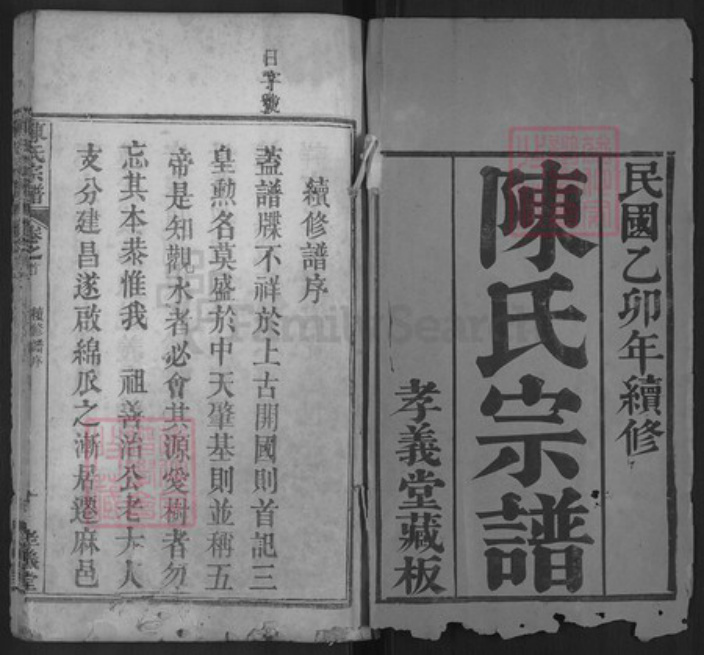 民國乙卯年續修
陳氏宗譜
孝義堂藏板
日字號
續修譜序
蓋譜牒不祥於上古開國則首記三
皇勲名莫盛於中天肇基則並稱五
帝是知觀水者必會其源愛樹者勿
忘其本恭惟我 祖善治公老大人
支分建昌遂啟綿瓜之漸居遷麻邑
陳氏宗譜
卷之首
續修譜序
孝義堂
FamilySearch